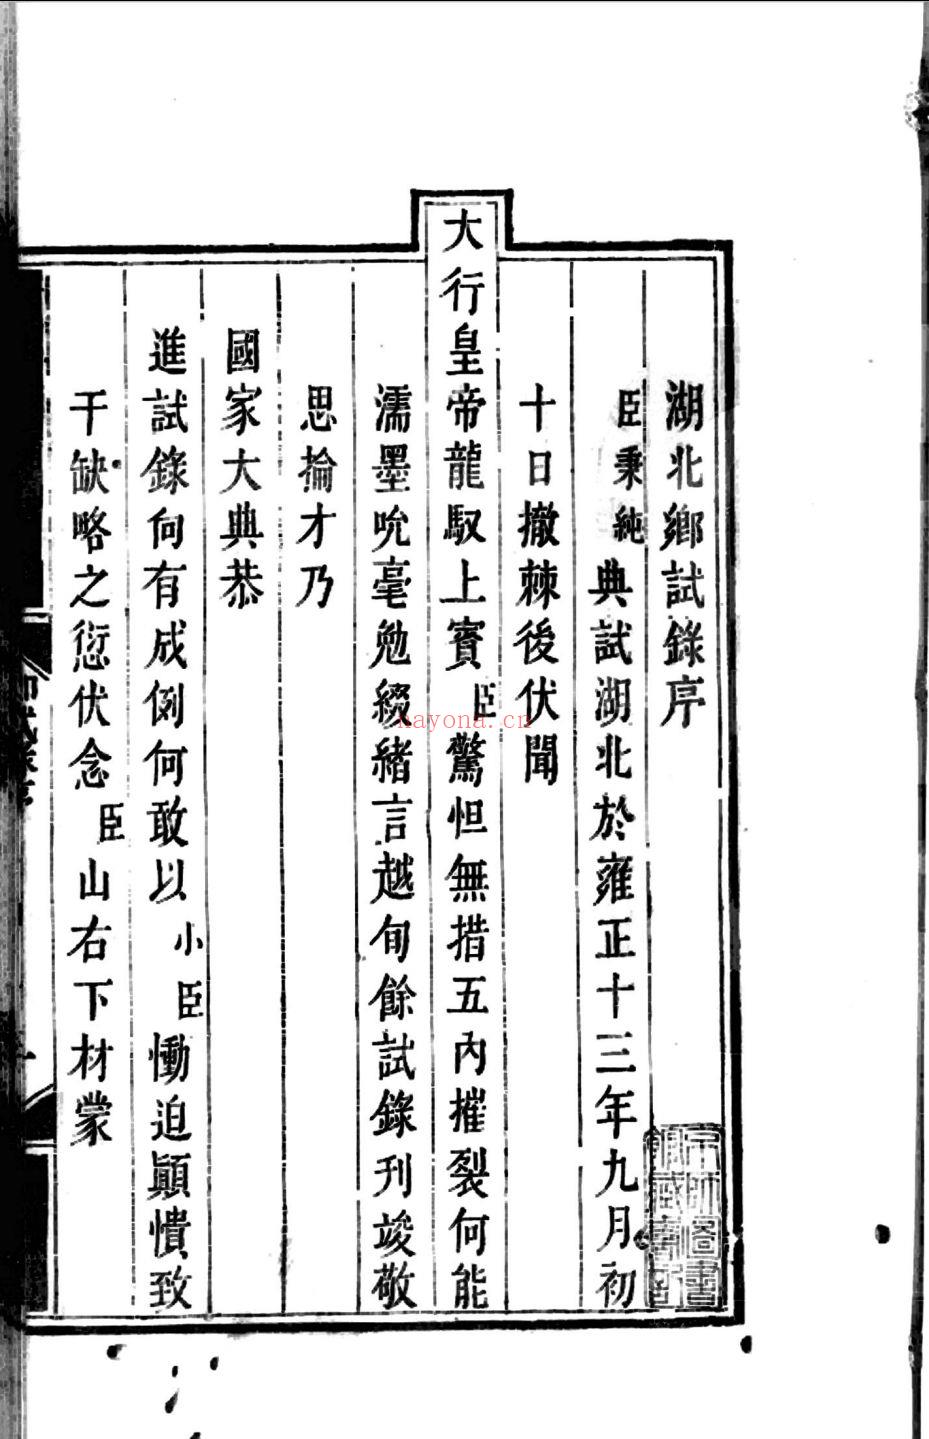 湖北鄉試錄序
臣秉純典試湖北於雍正十三年九月初
十日撤棘後伏聞
大行皇帝龍馭上賓臣驚怛無措五內摧裂何能
濡墨吮毫勉綴緒言越旬餘試錄刊竣敬
思掄才乃
國家大典恭
進試錄向有成例何敢以小臣慟迫顛憒致
干缺略之愆伏念臣山右下材蒙
京師圖書館藏書記
nayona.cn